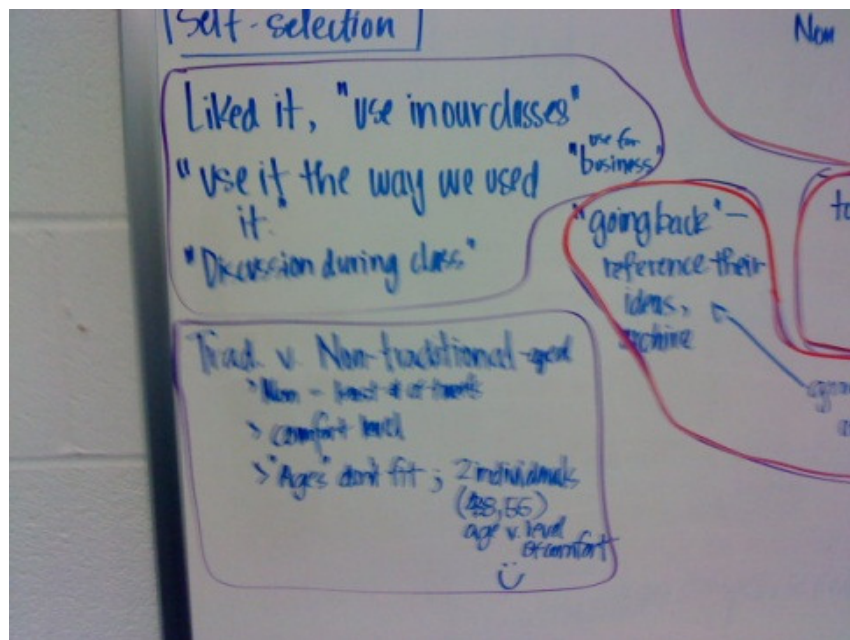 Self-selection
Liked it, "use in our classes"
"use it the way we used
it."
"use for
business"
"Discussion during class"
"going back" –
reference their
ideas,
archive
Trad. v. Non-traditional-aged
> Non – least # of tweets
> comfort level
> "Ages" don't fit ; 2 individuals
(48,56)
age v. level
of comfort
Non
to